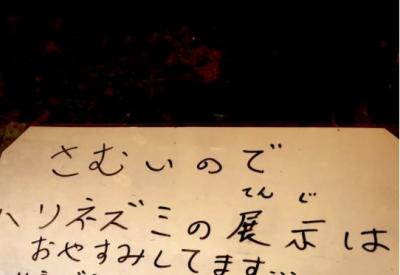 さむいので
てんじ
ハリネズミの展示は
おやすみしてます…